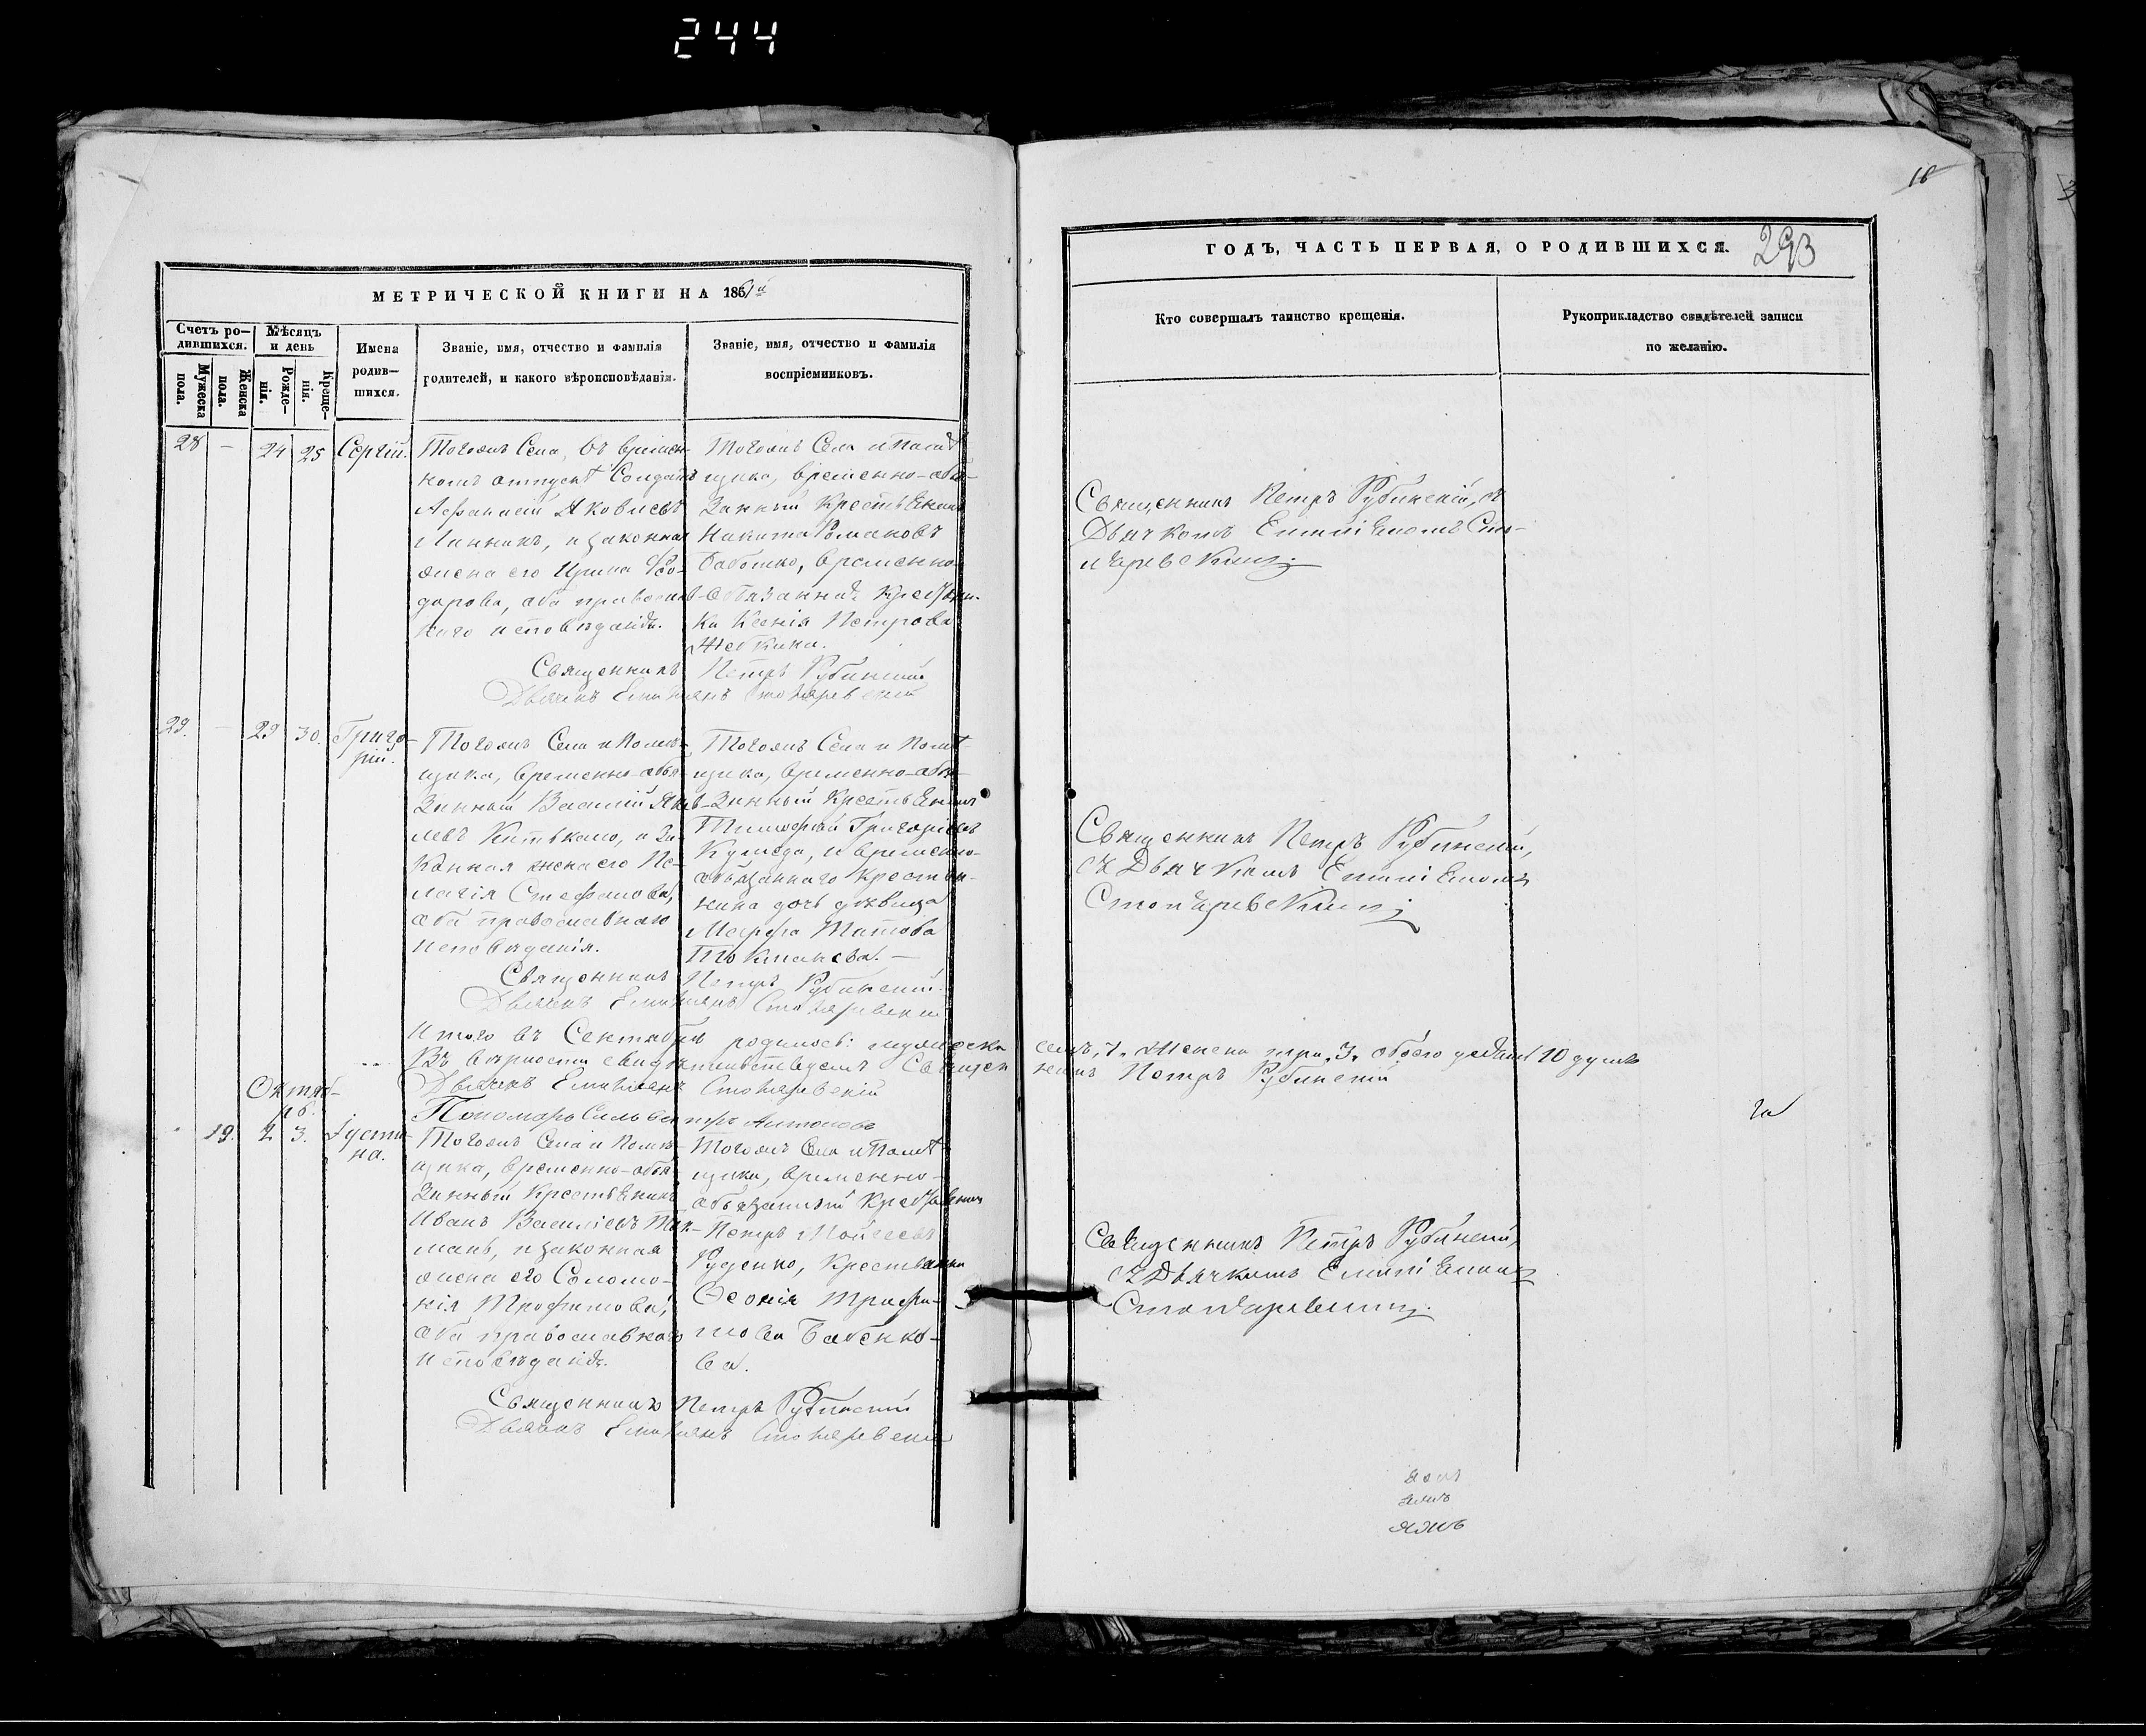 244
18
293
МЕТРИЧЕСКОЙ КНИГИ НА 1861й
Счетъ ро-
дившихся.
Мѣсяцъ
и день
Мужеска
пола.
Женска
пола.
Рожде-
нія.
Креще-
нія.
Имена
родив-
шихся.
Званіе, имя, отчество и фамилія
родителей, и какого вѣроисповѣданія.
Званіе, имя, отчество и фамилія
воспріемниковъ.
28 — 24 25 Сергій.
Тогожъ Села, въ времен-
номъ отпуску Солдатъ
Афанасій Яковлевъ
и законная
жена его Ирина Ѳео-
дорова, оба православ-
наго исповѣданія.
Тогожъ Села и Помѣ-
щика, временно-обя-
занный Крестьянинъ
Никита Романовъ
временно-
обязанная Крестьян-
ка Ксенія Петрова
Священникъ Петръ Рубинскій
Дьячекъ Емиліянъ Столяревскій
29. — 29 30. Григо-
рій.
Тогожъ Села и Помѣ-
щика, временно-обя-
занный Василій Яков-
левъ и за-
конная жена его Пе-
лагія Стефанова,
оба православнаго
исповѣданія.
Тогожъ Села и Помѣ-
щика, временно-обя-
занный Крестьянинъ
Тимофей Григорьевъ
и временно-
обязаннаго Крестья-
нина дочь дѣвица
Марфа Титова
Священникъ Петръ Рубинскій
Дьячекъ Емиліянъ Столяревскій
Итого въ Сентябрѣ родилось: мужеска семь, 7. Женска три, 3. обоего 10 душъ
Въ вѣрности свидѣтельствуемъ Священникъ Петръ Рубинскій
Дьячекъ Емиліянъ Столяревскій
Пономарь Сильвестръ Антоновъ
Октяб-
рь.
19. 2 3. Іусти-
на.
Тогожъ Села и Помѣ-
щика, временно-обя-
занный Крестьянинъ
Иванъ Васильевъ Ток-
мань, и законная
жена его Соломо-
нія Трофимова,
оба православнаго
исповѣданія.
Тогожъ Села и Помѣ-
щика, временно-
обязанный Крестьянинъ
Петръ Мойсеевъ
Руденко, Крестьянка
Ѳеонія Трофи-
мова Бабенко-
ва.
Священникъ Петръ Рубинскій
Дьячекъ Емиліянъ Столяревскій
ГОДЪ, ЧАСТЬ ПЕРВАЯ, О РОДИВШИХСЯ.
Кто совершалъ таинство крещенія.
Рукоприкладство свидѣтелей записи
по желанію.
Священникъ Петръ Рубинскій, съ
Дьячкомъ Емиліяномъ Сто-
ляревскимъ.
Священникъ Петръ Рубинскій,
съ Дьячкомъ Емиліяномъ
Столяревскимъ.
Священникъ Петръ Рубинскій,
съ Дьячкомъ Емиліяномъ
Столяревскимъ.